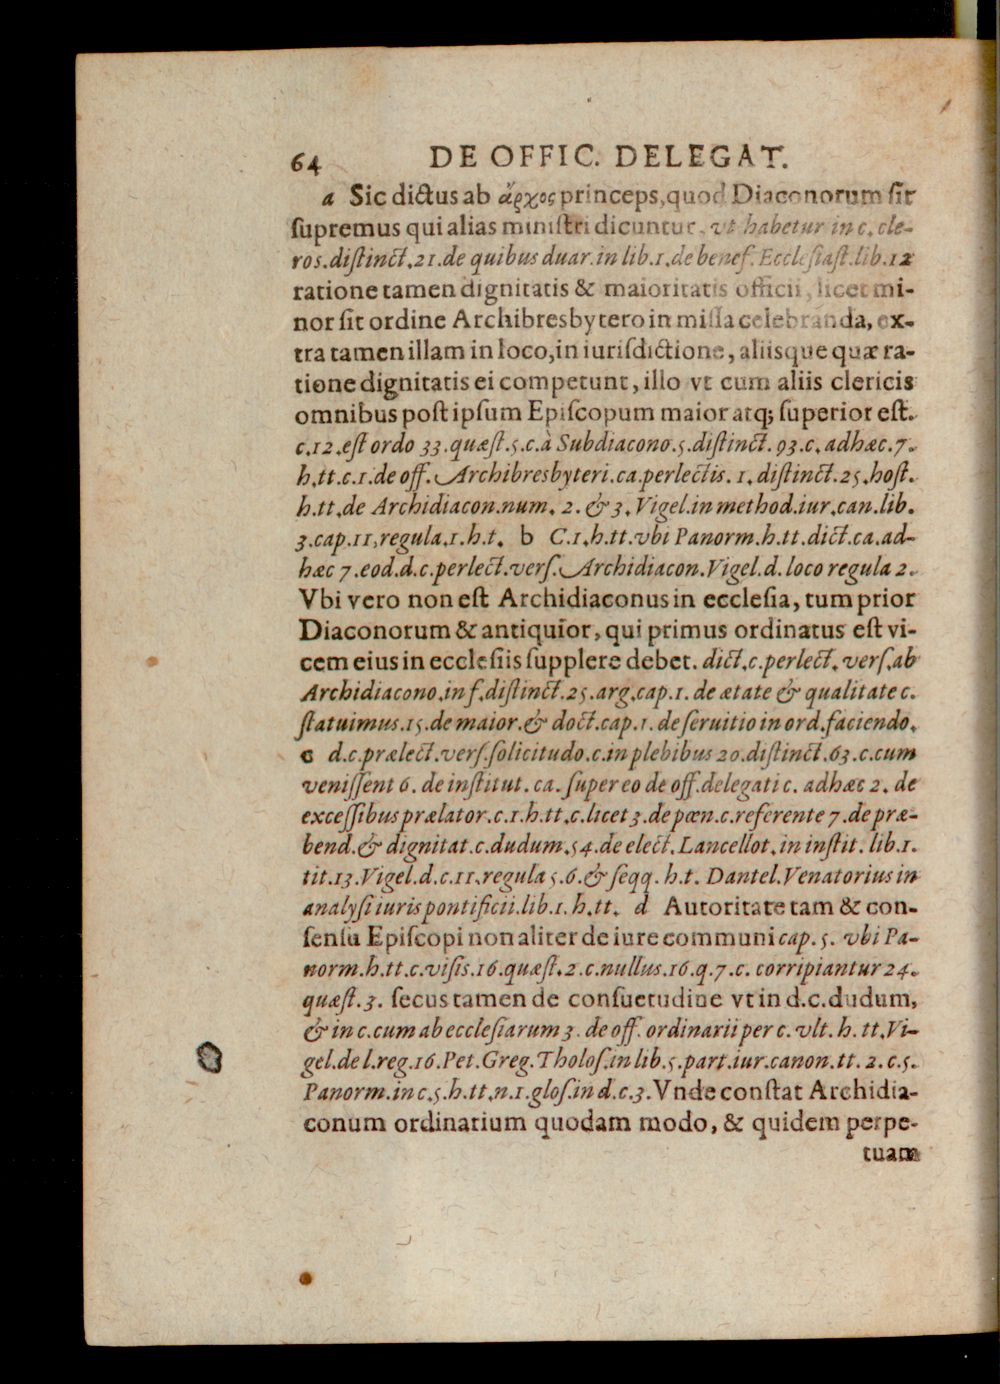 64 DE OFFIC. DELEGAT.
a Sic dictus ab ἄρχος princeps, quod Diaconorum sit
ſupremus qui alias miniſtri dicuntur, vt habetur in c. cle-
ros. diſtinct. 21. de quibus duar. in lib. 1. de benef. Eccleſiaſt. lib. 12
ratione tamen dignitatis & maioritatis officii, licet mi-
nor ſit ordine Archibresbytero in miſſa celebranda, ex-
tra tamen illam in loco, in iurisdictione, aliisque quæ ra-
tione dignitatis ei competunt, illo vt cum aliis clericis
omnibus poſt ipſum Epiſcopum maior atq; ſuperior eſt.
c. 12. eſt ordo 33. quæſt. 5. c. à Subdiacono. 5. diſtinct. 93. c. adhæc. 7.
h. tt. c. 1. de off. Archibresbyteri. ca. perlectis. 1. diſtinct. 25. hoſt.
h. tt. de Archidiacon. num. 2. & 3. Vigel. in method. iur. can. lib.
3. cap. 11, regula. 1. h. t. b C. 1. h. tt. vbi Panorm. h. tt. dict. ca. ad-
hæc 7. eod. d. c. perlect. verſ. Archidiacon. Vigel. d. loco regula 2.
Vbi vero non eſt Archidiaconus in eccleſia, tum prior
Diaconorum & antiquior, qui primus ordinatus eſt vi-
cem eius in eccleſiis ſupplere debet. dict. c. perlect. verſ. ab
Archidiacono. in f. diſtinct. 25. arg. cap. 1. de ætate & qualitate c.
ſtatuimus. 15. de maior. & doct. cap. 1. de ſeruitio in ord. faciendo.
c d. c. prælect. verſ. ſolicitudo. c. in plebibus 20. diſtinct. 63. c. cum
veniſſent 6. de inſtitut. ca. ſuper eo de off. delegati c. adhæc 2. de
exceſſibus prælator. c. 1. h. tt. c. licet 3. de pœn. c. referente 7. de præ-
bend. & dignitat. c. dudum. 54. de elect. Lancellot. in inſtit. lib. 1.
tit. 13. Vigel. d. c. 11. regula 5. 6. & ſeqq. h. t. Dantel. Venatorius in
analyſi iuris pontificii. lib. 1. h. tt. d Autoritate tam & con-
ſenſu Epiſcopi non aliter de iure communi cap. 5. vbi Pa-
norm. h. tt. c. viſis. 16. quæſt. 2. c. nullus. 16. q. 7. c. corripiantur 24.
quæſt. 3. ſecus tamen de conſuetudine vt in d. c. dudum,
& in c. cum ab eccleſiarum 3. de off. ordinarii per c. vlt. h. tt. Vi-
gel. de l. reg. 16. Pet. Greg. Tholoſ. in lib. 5. part. iur. canon. tt. 2. c. 5.
Panorm. in c. 5. h. tt. n. 1. gloſ. in d. c. 3. Vnde conſtat Archidia-
conum ordinarium quodam modo, & quidem perpe-
tuam